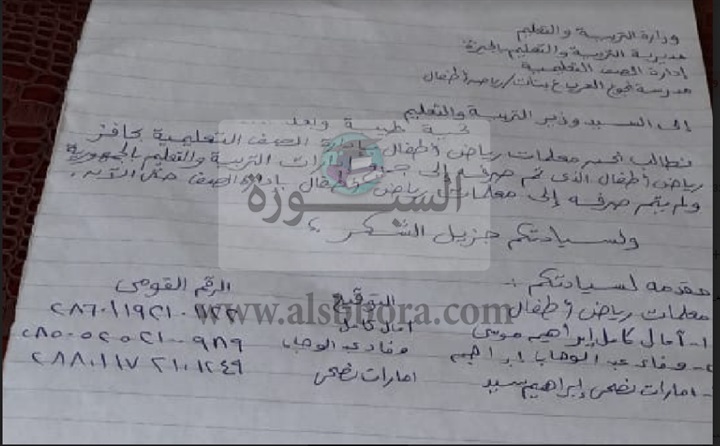 وزارة التربية والتعليم
مديرية التربية والتعليم بالجيزة
إدارة الصف التعليمية
مدرسة نجوع العرب ع بنات / رياض أطفال
إلى السيد وزير التربية والتعليم
تحية طيبة وبعد
نطالب نحن معلمات رياض أطفال إدارة الصف التعليمية بحافز
رياض أطفال الذى تم صرفه إلى جميع إدارات التربية والتعليم بالجمهورية
ولم يتم صرفه إلى معلمات رياض أطفال بإدارة الصف حتى الآن.
ولسيادتكم جزيل الشكر
السبورة
www.alsbbora.com
مقدمه لسيادتكم :
معلمات رياض أطفال التوقيع الرقم القومى
١- آمال كامل إبراهيم موسى آمال كامل
٢- وفاء عبد الوهاب إبراهيم وفاء عبد الوهاب
- امارات نصحى إبراهيم سيد امارات نصحى